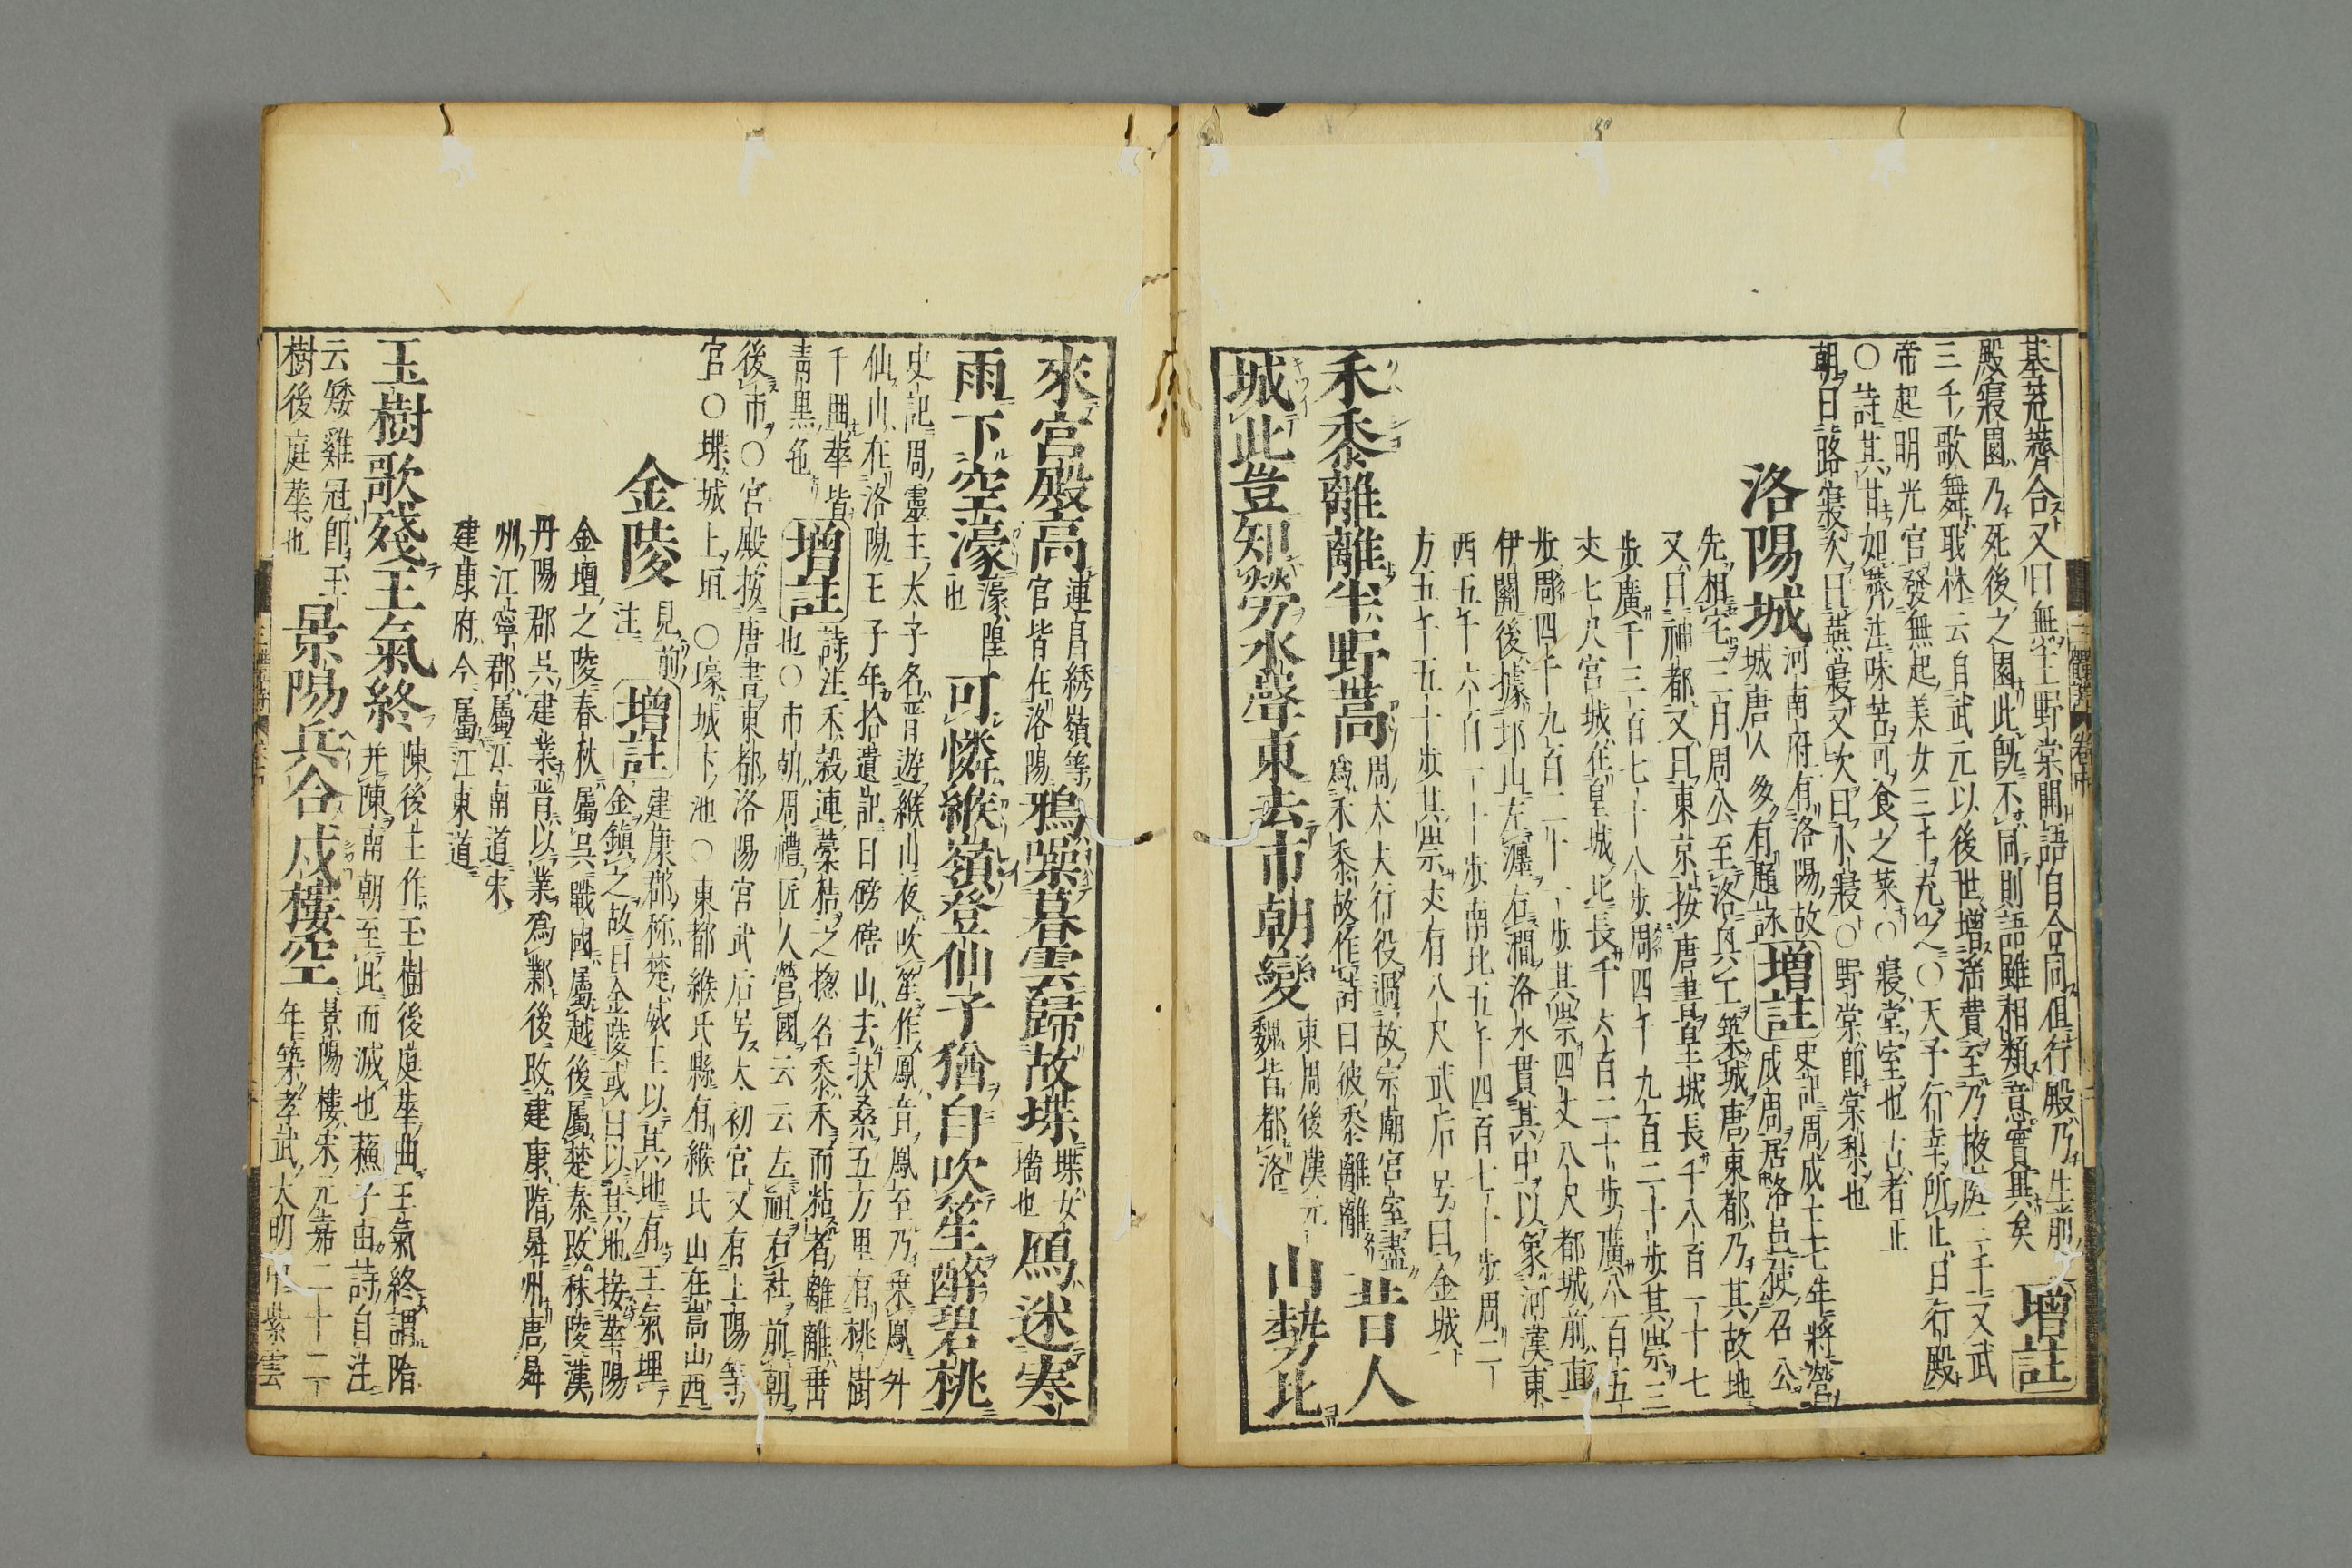 基荒薺合又曰無主野棠開語自合同但行殿乃生前
殿寢園乃死後之園此既不同則語雖相類意實異矣
増註
三千歌舞耿林云自武元以後世増淫費至乃掖庭三千又武
帝起明光宮發無趙美女三千充之〇天子行幸所止曰行殿
〇詩其甘如薺注味苦可食之菜〇寢堂室也古者正
朝曰路寢次曰燕寢又次曰小寢〇野棠即棠梨也
洛陽城
河南府有洛陽故
城唐人多有題詠
増註
史記周成王七年將營
成周居洛邑使召公
先相宅三月周公至洛興工築城唐東都乃其故地
又曰神都又曰東京按唐書皇城長千八百一十七
步廣千三百七十八步周四千九百二十步其崇三
丈七尺宮城在皇城北長千六百二十步廣八百五
步周四千九百二十一步其崇四丈八尺都城前直
伊闕後據邙山左瀍右澗洛水貫其中以象河漢東
西五千六百一十步南北五千四百七十步周二
万五千五十步其崇丈有八尺武后号曰金城
禾黍離離半野蒿
周大夫行役過故宗廟宮室盡
爲禾黍故作詩曰彼黍離離
昔人
城此豈知勞水聲東去市朝變
東周後漢元
魏皆都洛
山勢北
來宮殿高
連昌綉嶺等
宮皆在洛陽
鴉噪暮雲歸故堞
堞女
墻也
鴈迷寒
雨下空濠
濠隍
也
可憐緱嶺登仙子猶自吹笙醉碧桃
史記周靈王太子名晋遊緱山夜吹笙作鳳音鳳至乃乗鳳升
仙山在洛陽王子年拾遺記曰磅磄山去扶桑五万里有桃樹
千囲華皆
青黒色
増註
詩注禾穀連藁秸之揔名黍禾而粘者離離垂
也〇市朝周禮匠人營國云云左祖右社前朝
後市〇宮殿按唐書東都洛陽宮武后号太初宮又有上陽等
宮〇堞城上垣〇壕城下池〇東都緱氏縣有緱氏山在嵩山西
金陵
見前
注
増註
建康郡称楚威王以其地有王氣埋
金鎮之故曰金陵或曰以其地接華陽
金壇之陵春秋屬呉戰國屬越後屬楚秦改秣陵漢
丹陽郡呉建業晋以業爲鄴後改建康隋昇州唐昇
州江寧郡屬江南道宋
建康府今屬江東道
玉樹歌殘王氣終
陳後主作玉樹後庭華曲王氣終謂隋
并陳南朝至此而滅也蘓子由詩自注
云矮雞冠即玉
樹後庭華也
景陽兵合戍樓空
景陽樓宋元嘉二十二
年築孝武大明中紫雲